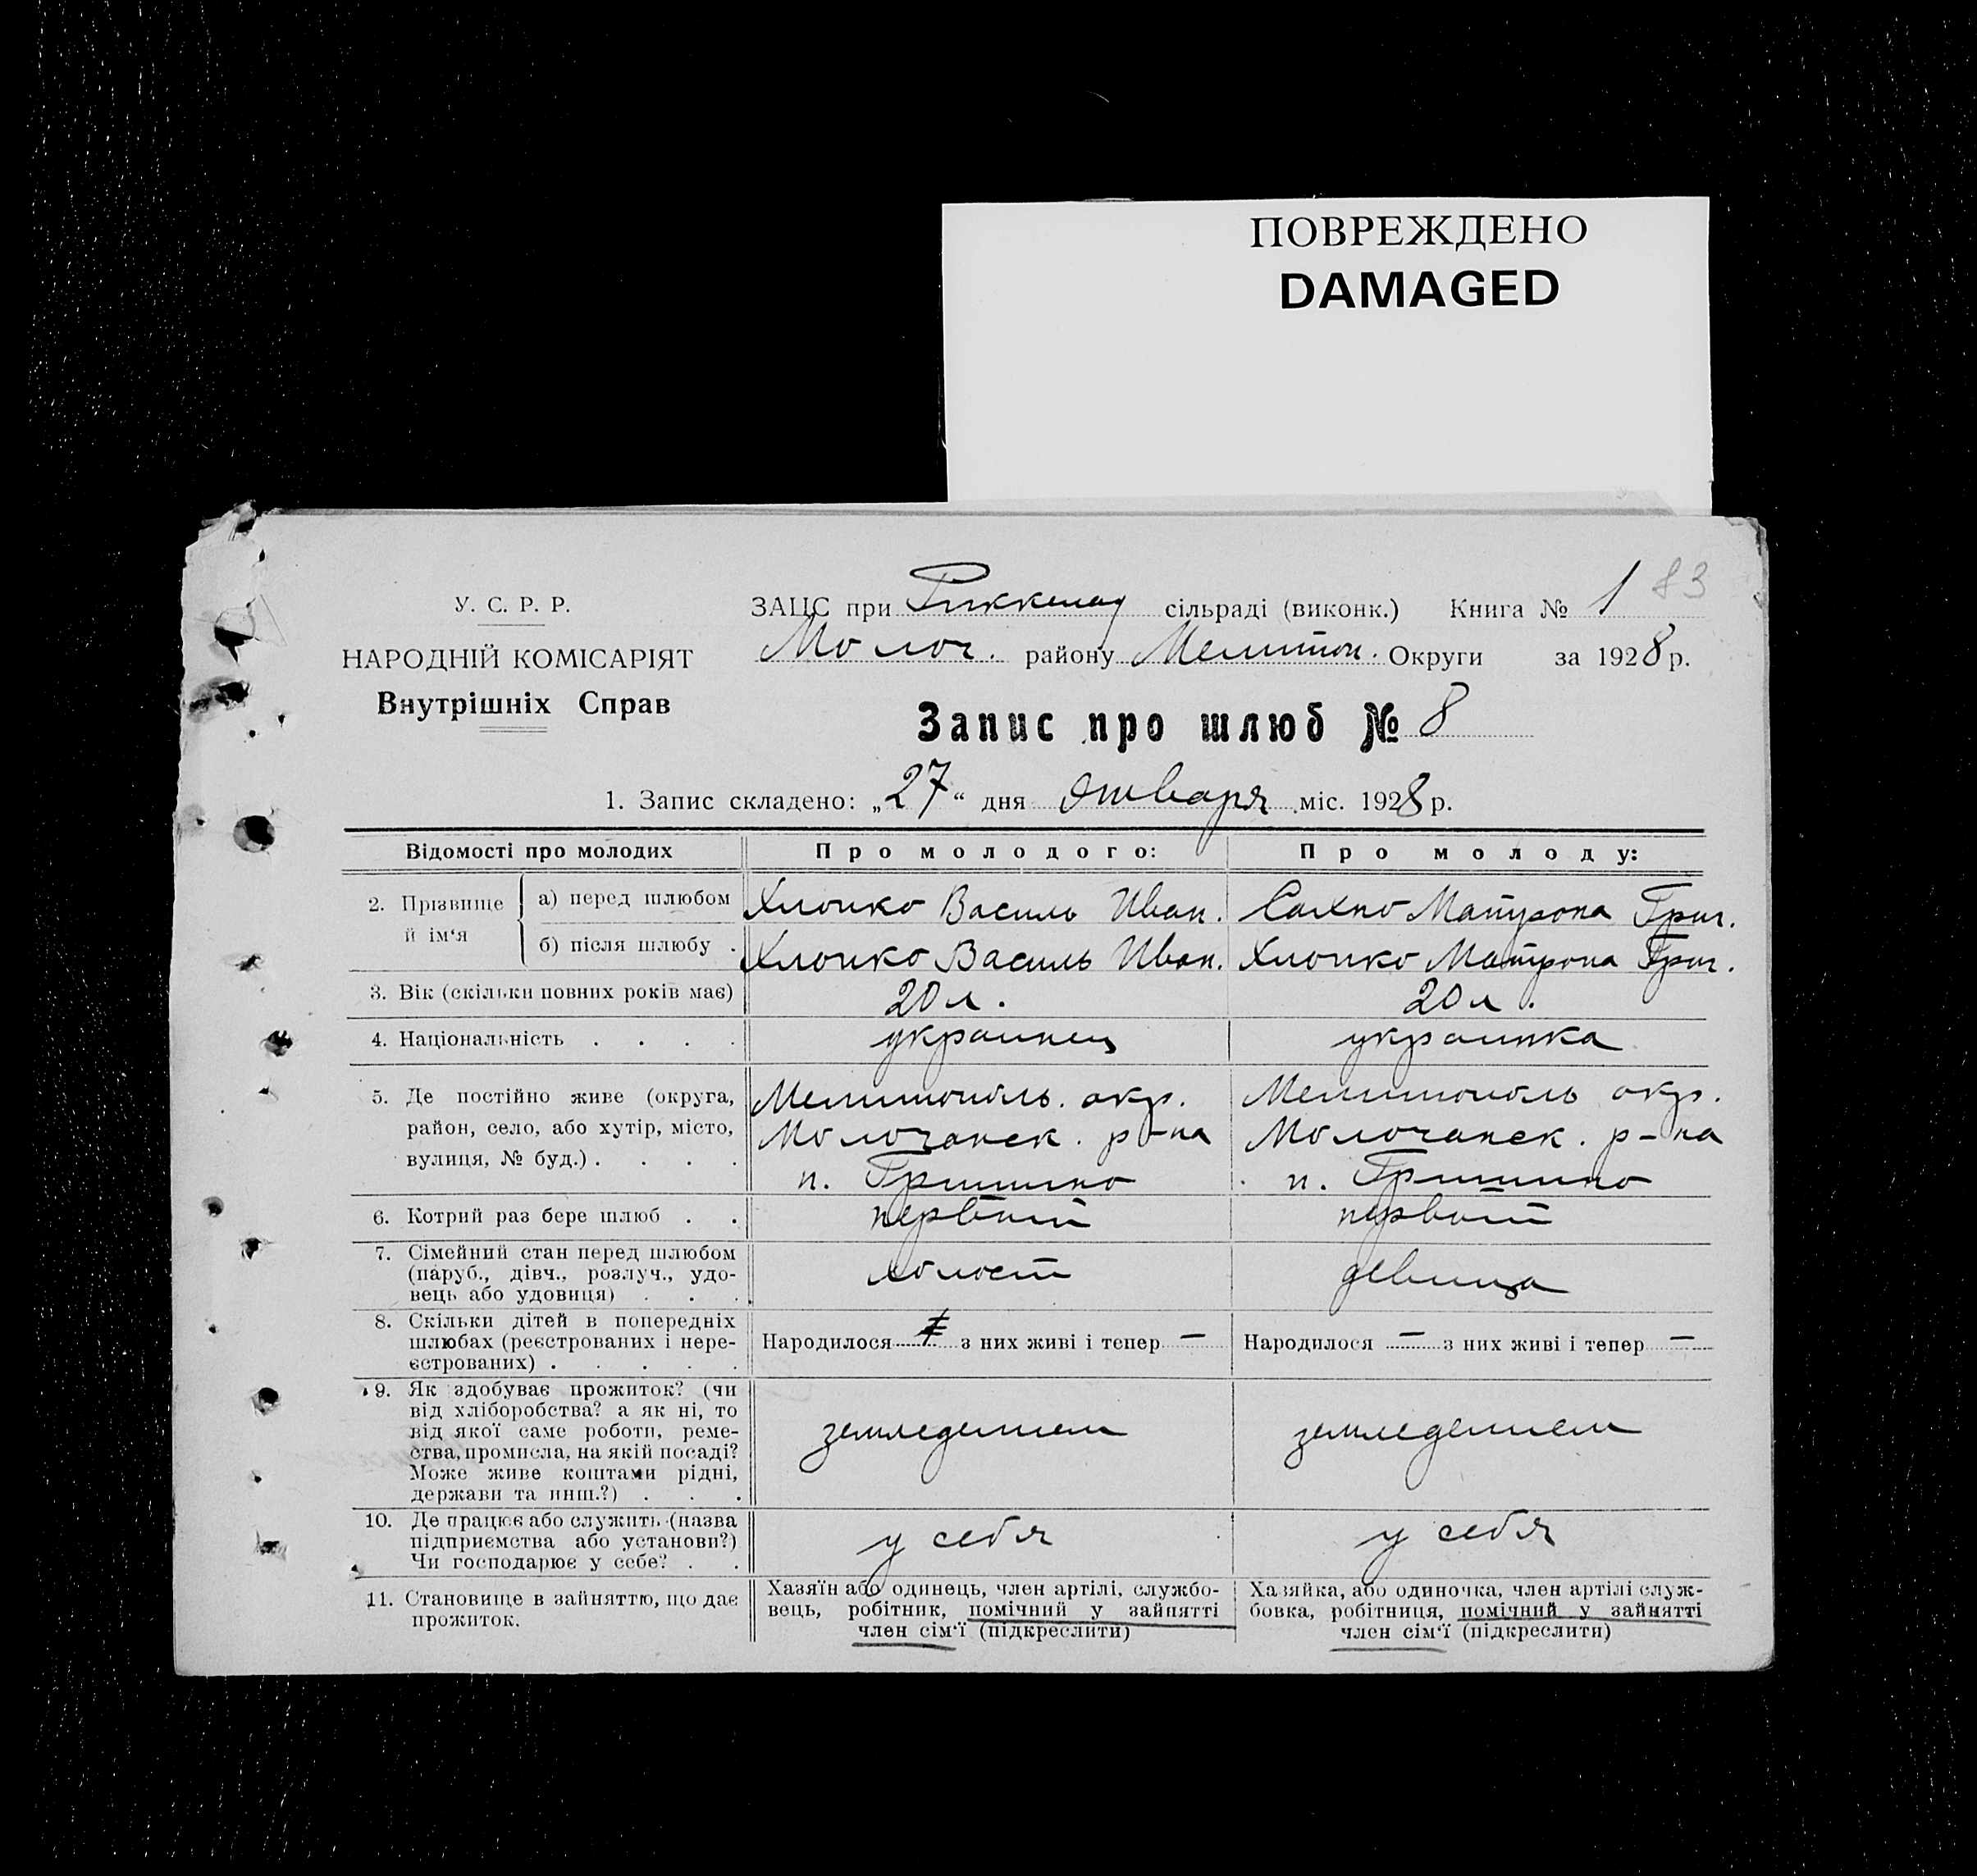 ПОВРЕЖДЕНО
DAMAGED
83
У. С. Р. Р.
НАРОДНІЙ КОМІСАРІЯТ
Внутрішніх Справ
ЗАЦС при Риккенау сільраді (виконк.) Книга № 1
Молоч. району Мелитоп. Округи за 1928 р.
Запис про шлюб № 8
1. Запис складено: „27“ дня января міс. 1928 р.
Відомості про молодих Про молодого: Про молоду:
2. Прізвище й ім‘я
а) перед шлюбом Хлопко Василь Иван. Сахно Матрона Григ.
б) після шлюбу . Хлопко Василь Иван. Хлопко Матрона Григ.
3. Вік (скільки повних років має) 20 л. 20 л.
4. Національність . . . . украинец украинка
5. Де постійно живе (округа, Мелитополь. окр. Мелитополь окр.
район, село, або хутір, місто, Молочанск. р-на Молочанск. р-на
вулиця, № буд.) . . . . п. Гришино п. Гришино
6. Котрий раз бере шлюб . . первый первый
7. Сімейний стан перед шлюбом
(паруб., дівч., розлуч., удо- холост девица
вець або удовиця) . . .
8. Скільки дітей в попередніх
шлюбах (реєстрованих і нере- Народилося з них живі і тепер — Народилося — з них живі і тепер —
єстрованих) . . . . .
9. Як здобуває прожиток? (чи
від хліборобства? а як ні, то
від якої саме роботи, реме- земледелием земледелием
ства, промисла, на якій посаді?
Може живе коштами рідні,
держави та инш.?) . . .
10. Де працює або служить (назва
підприємства або установи?) у себя у себя
Чи господарює у себе? . .
11. Становище в зайняттю, що дає
прожиток.
Хазяїн або одинець, член артілі, службо-
вець, робітник, помічний у зайнятті
член сім‘ї (підкреслити)
Хазяйка, або одиночка, член артілі служ-
бовка, робітниця, помічний у зайнятті
член сім‘ї (підкреслити)